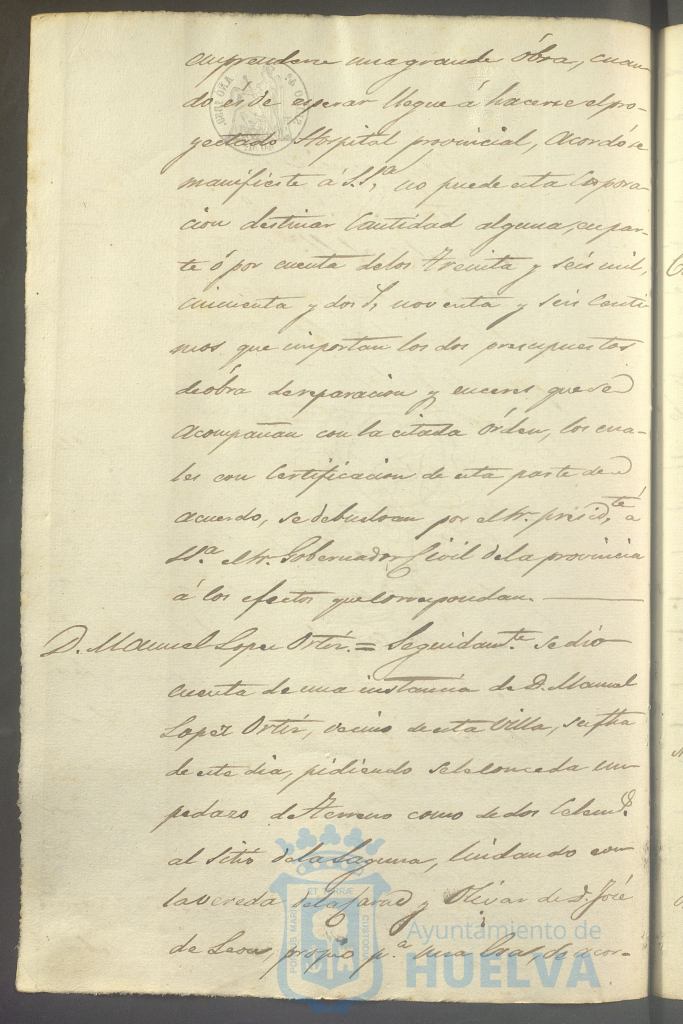 emprenderse una grande óbra, cuan-
do es de esperar llegue á hacerse el pro-
yectado Hospital provincial, Acordóse
manifieste á S.Sª, no puede esta Corpora-
cion destinar Cantidad alguna, en par-
te ó por cuenta delos treinta y seis mil,
cincuenta y dos noventa y seis Centi-
mos que importan los dos presupuestos
de óbra de reparacion y enseres que se
acompañan con la citada órden, los cua-
les con Certificacion de esta parte de
acuerdo, se debuelvan por el Sr. presidte á
SSª. el Sr. Gobernador Civil dela provincia
á los efectos que correspondan.
D. Manuel Lopez Ortiz. = Seguidamte. se dio
cuenta de una instancia de D. Manuel
Lopez Ortiz, vecino de esta Villa, su fha
de este dia, pidiendo sele conceda un
pedazo de terreno como de dos Celems.
al sitio dela Laguna, lindando con
la vereda dela y Olivar de D. José
de Leon, propio pª. una acor-
Ayuntamiento de
HUELVA